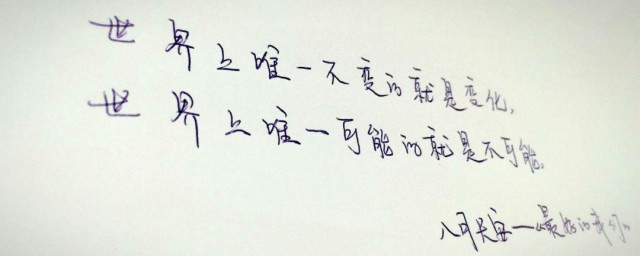 世界上唯一不变的就是变化,
世界上唯一可能的就是不可能.
八月长安—最好的我们